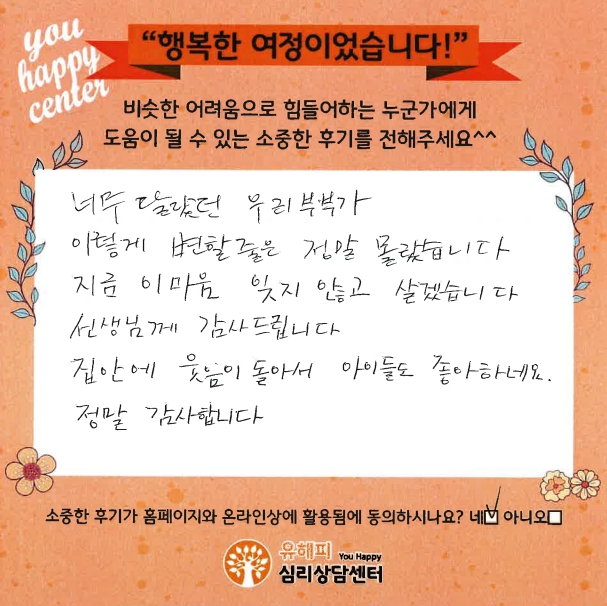 you
happy
center
“행복한 여정이었습니다!”
비슷한 어려움으로 힘들어하는 누군가에게
도움이 될 수 있는 소중한 후기를 전해주세요^^
너무 달랐던 우리부부가
이렇게 변할줄은 정말 몰랐습니다
지금 이마음 잊지 않고 살겠습니다
선생님께 감사드립니다
집안에 웃음이 돌아서 아이들도 좋아하네요.
정말 감사합니다
소중한 후기가 홈페이지와 온라인상에 활용됨에 동의하시나요? 네☑ 아니오□
유해피 You Happy
심리상담센터